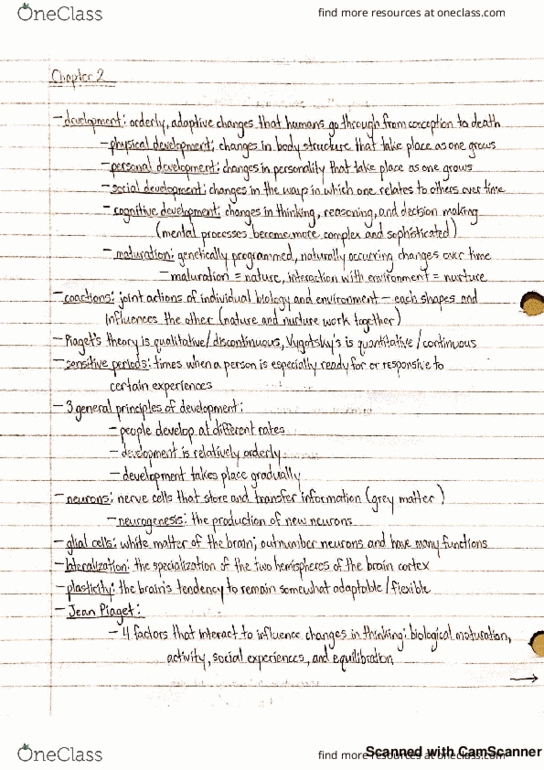 OneClass
find more resources at oneclass.com
Chapter 2
- development: orderly, adaptive changes that humans go through from conception to death
- physical development: changes in body structure that take place as one grows
- personal development: changes in personality that take place as one grows
- social development: changes in the ways in which one relates to others over time
- cognitive development: changes in thinking, reasoning, and decision making
(mental processes become more complex and sophisticated)
- maturation: genetically programmed, naturally occurring changes over time
- maturation = nature, interaction with environment = nurture
- coactions: joint actions of individual biology and environment - each shapes and
influences the other (nature and nurture work together)
- Piaget's theory is qualitative/discontinuous, Vygotsky's is quantitative/continuous
- sensitive periods: times when a person is especially ready for or responsive to
certain experiences
- 3 general principles of development:
- people develop at different rates
- development is relatively orderly
- development takes place gradually
- neurons: nerve cells that store and transfer information (grey matter)
- neurogenesis: the production of new neurons
- glial cells: white matter of the brain; outnumber neurons and have many functions
- lateralization: the specialization of the two hemispheres of the brain cortex
- plasticity: the brain's tendency to remain somewhat adaptable/flexible
- Jean Piaget:
- 4 factors that interact to influence changes in thinking: biological maturation,
activity, social experiences, and equilibration
→
OneClass
find more resources at oneclass.com
Scanned with CamScanner